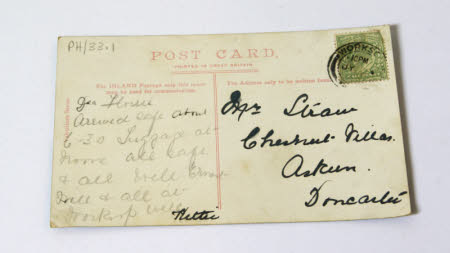 PH/33.1
POST CARD.
PRINTED IN GREAT BRITAIN.
The INLAND Postage only this space
may be used for communication.
The Address only to be written here.
WORKSOP
Dea Florrie
Arrived safe about
-30 Luggage at
Home all safe
& all well
Well & all at
Worksop well
Nettie
Mr Straw
Chestnut Villas.
Askern.
Doncaster